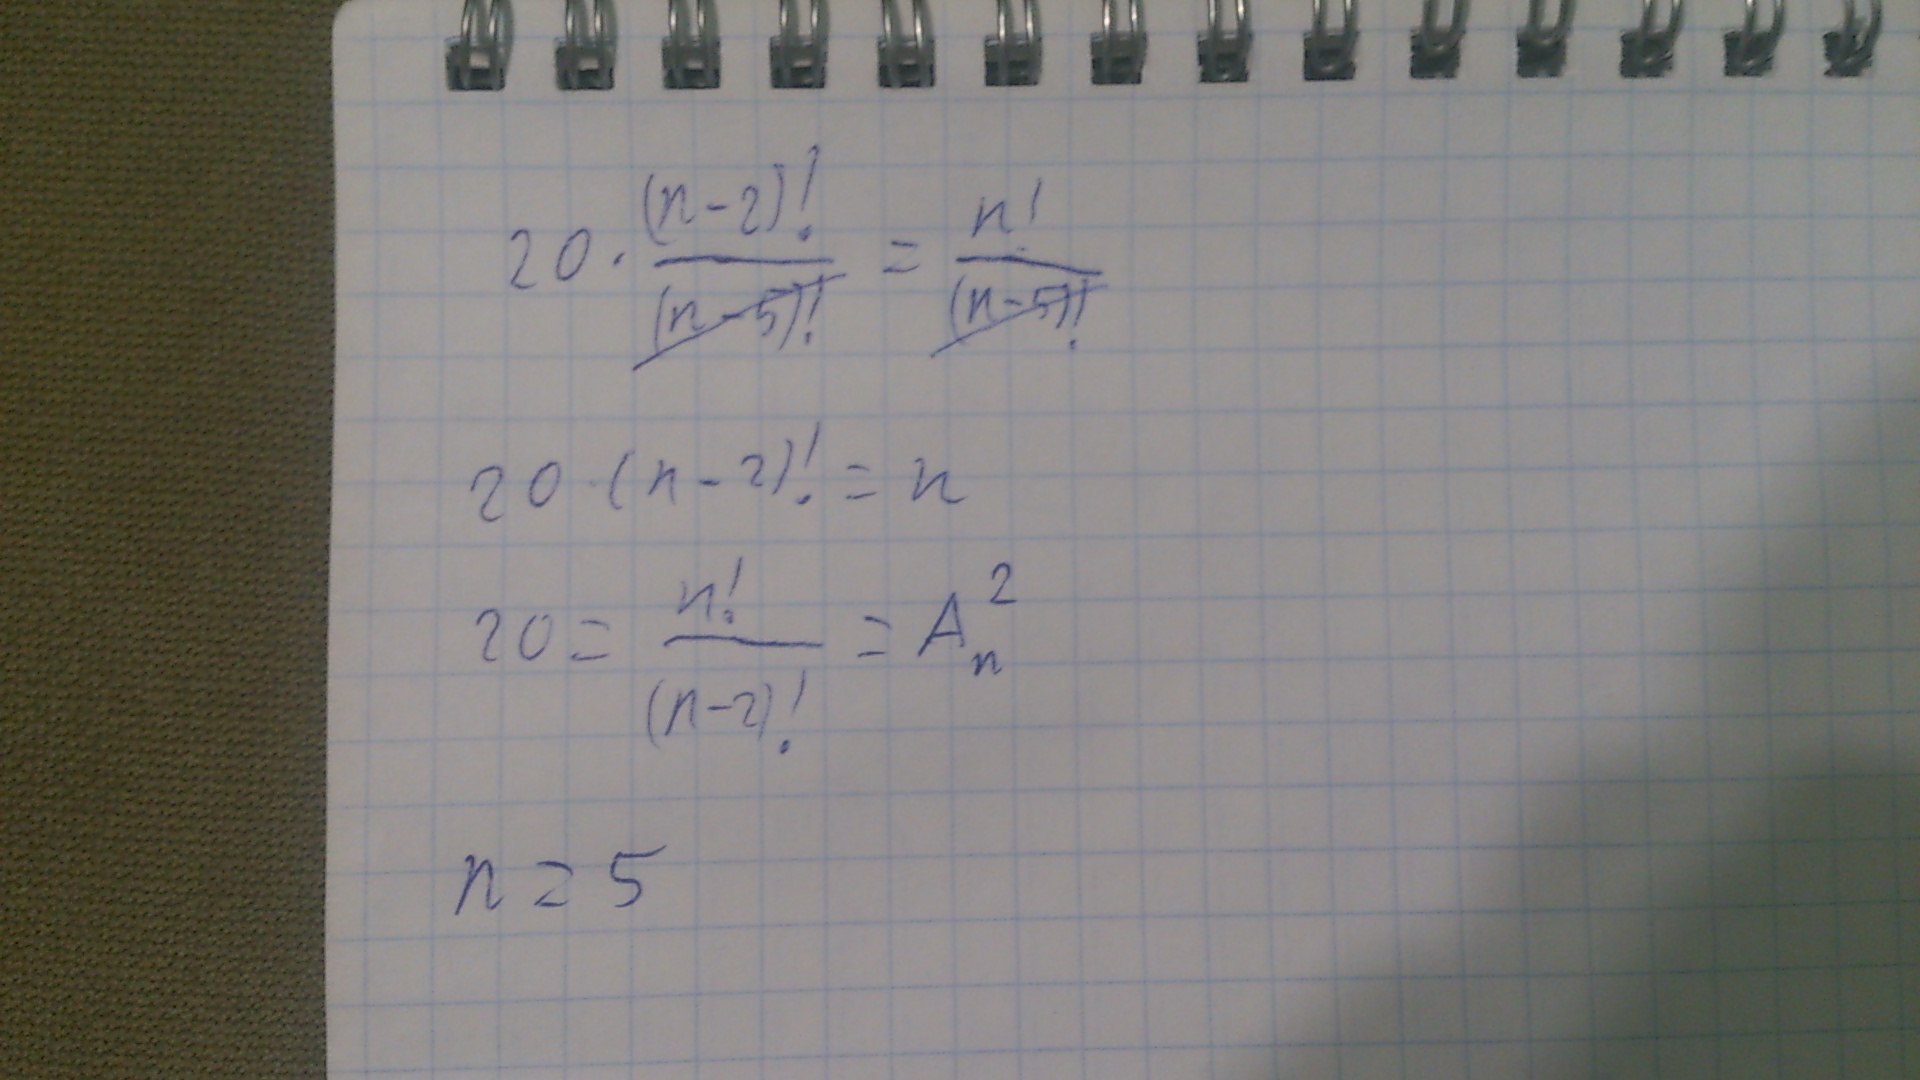 20 · (n-2)! / (n-5)! = n! / (n-5)!
20 · (n-2)! = n
20 = n! / (n-2)! = A_n^2
n = 5